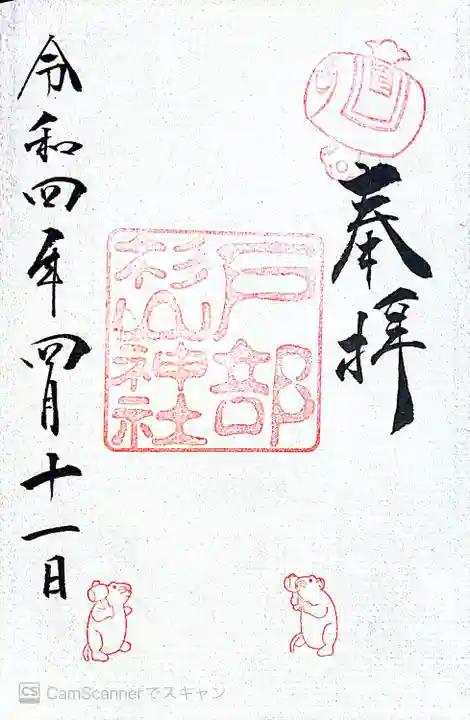 奉拝
戸部
杉山神社
令和四年四月十一日
CS CamScannerでスキャン